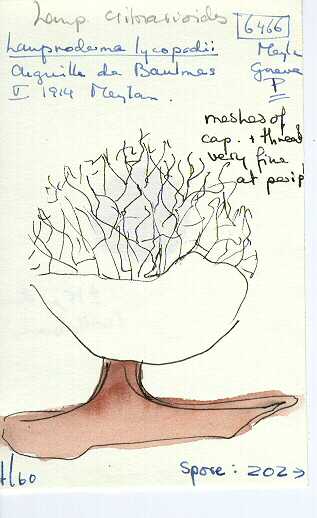 Lamp. cribrarioides
6466
Lamproderma lycopodii
Aiguille de Baulmes
V 1914 Meylan.
Meylan
Geneva
P
meshes of
cap. + thread
very fine
at perip
/60
Spore: 202→